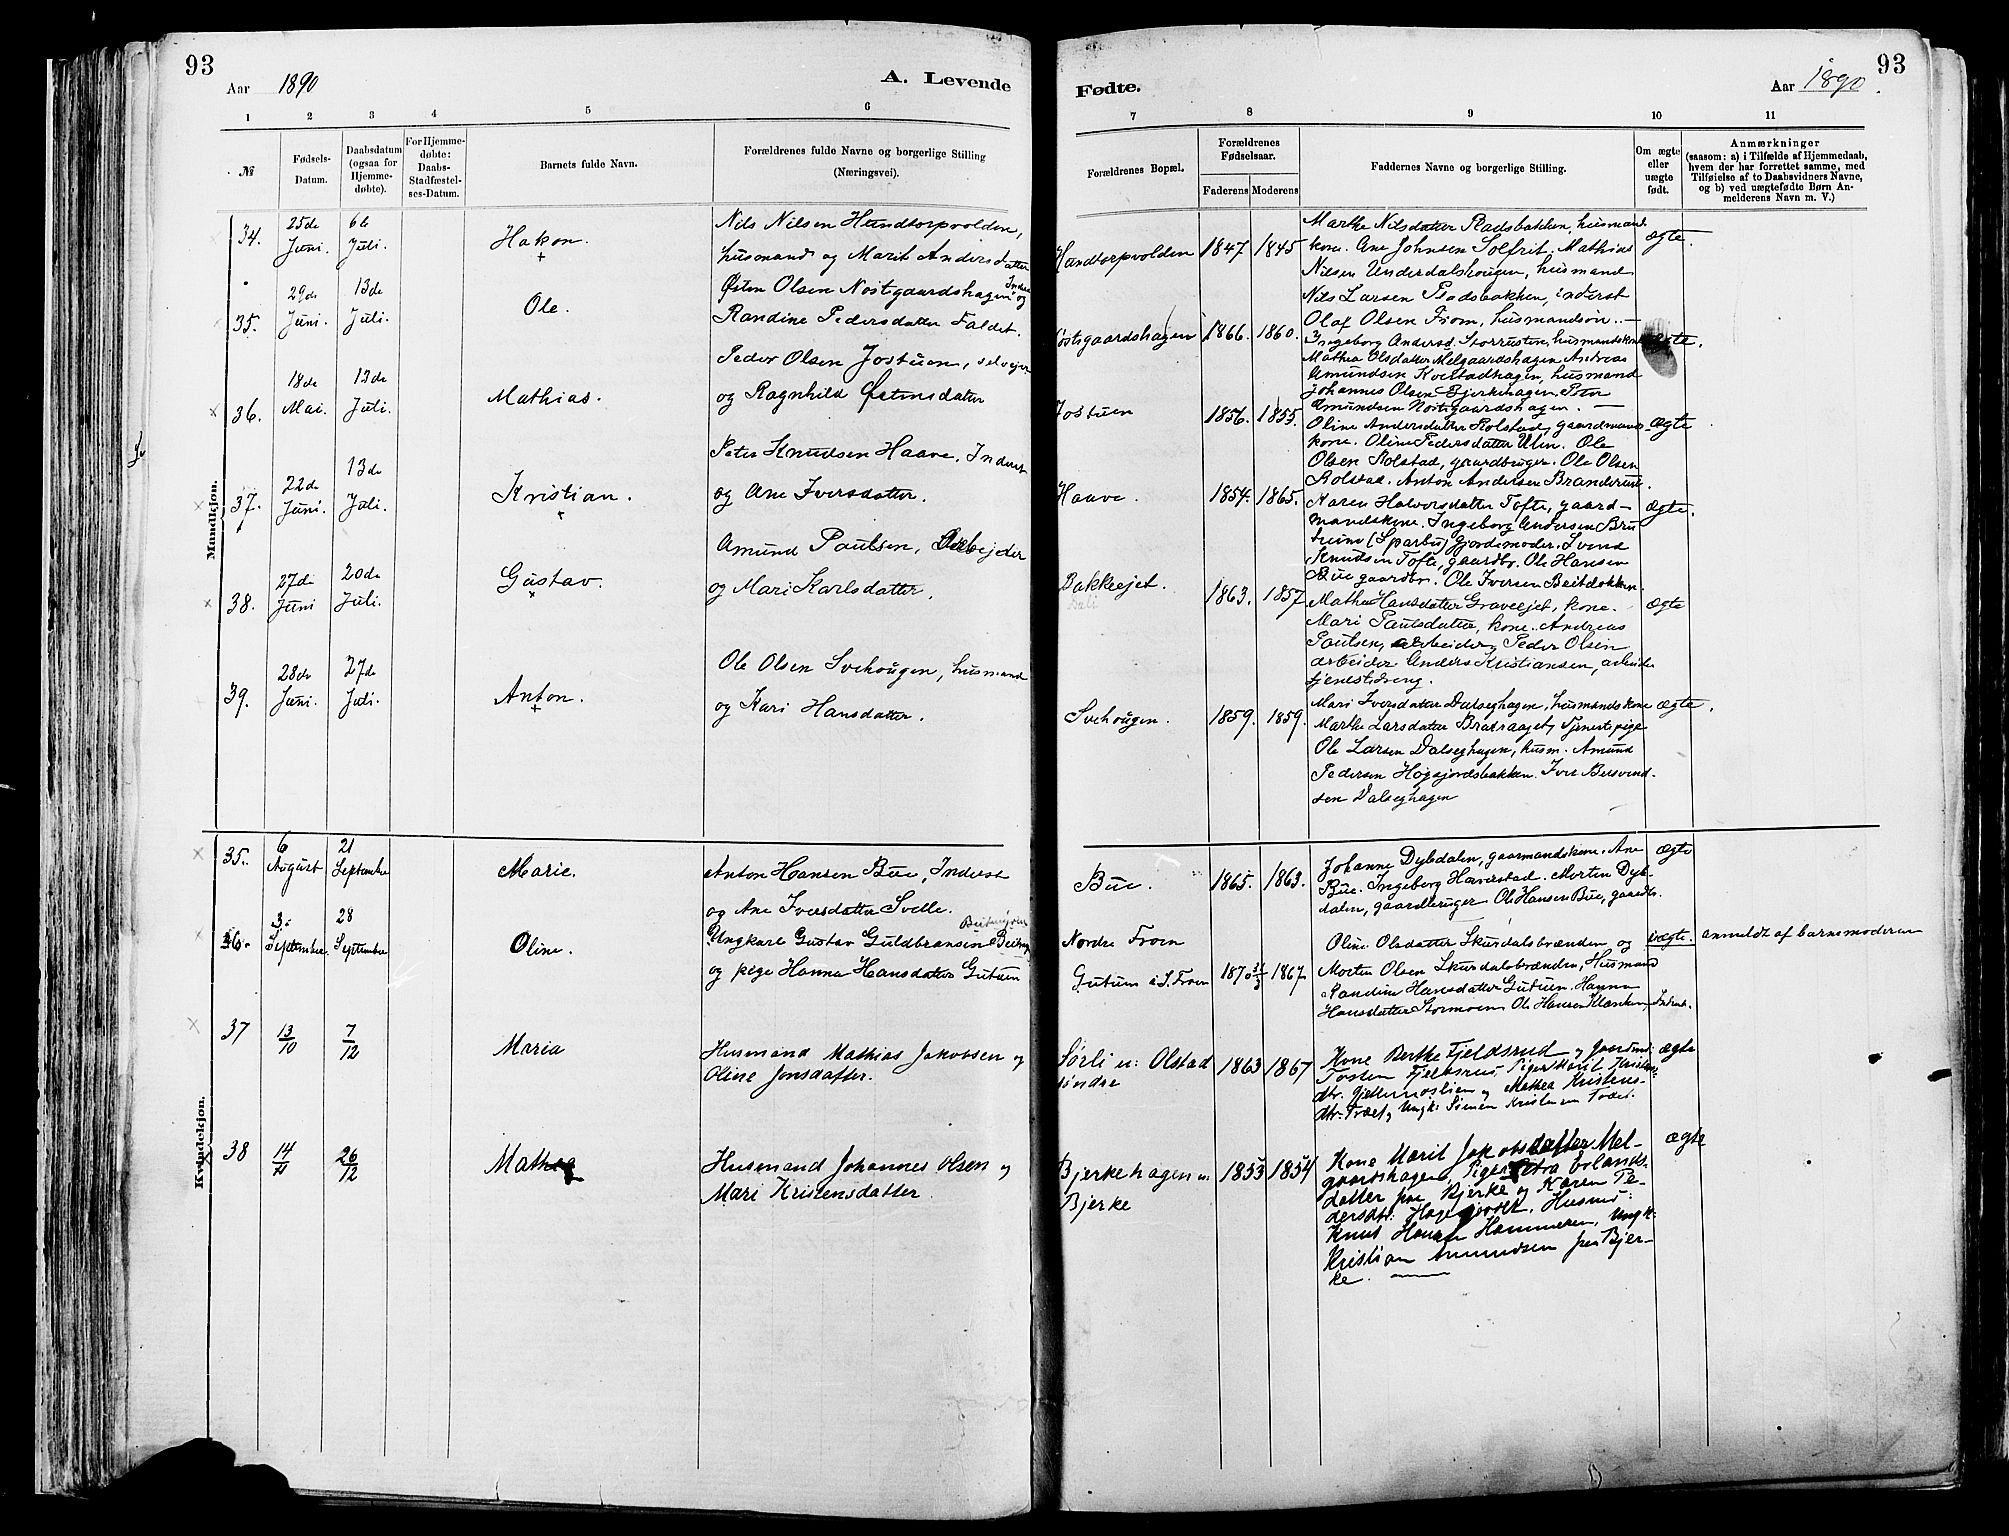 93
Aar 1890
A. Levende
1 2 3 4 5 6
№
Fødsels-
Datum.
Daabsdatum
(ogsaa for
Hjemme-
døbte).
For Hjemme-
døbte:
Daabs-
Stadfæstel-
ses-Datum.
Barnets fulde Navn.
Forældrenes fulde Navne og borgerlige Stilling
(Næringsvei).
Mandkjøn.
34.
25de
Juni.
6te
Juli.
Hakon.
Nils Nilsen Hundtorpvolden,
husmand og Marit Andersdatter
35.
29de
Juni.
13de
Juli.
Ole.
Østen Olsen Nostgaardshagen og
Randine Pedersdatter Faldet.
36.
18de
Mai.
13de
Juli.
Mathias.
Peder Olsen Jostuen, selveier
og Ragnhild Østensdatter
37.
22de
Juni.
13de
Juli.
Kristian.
Peter Knudsen Haave, Inderst
og Ane Iversdatter.
38.
27de
Juni
20de
Juli.
Gustav.
Amund Paulsen, Arbejder
og Mari Karlsdatter.
39.
28de
Juni.
27de
Juli.
Anton.
Ole Olsen Svehougen, husmand
og Kari Hansdatter.
Kvindekjøn.
35.
6
August
21
Septembre
Marie.
Anton Hansen Bue, Inderst
og Ane Iversdatter Svelle.
36.
3
September.
28
September
Oline.
Ungkarl Gustav Guldbransen
og pige Hanna Hansdatter Gutuen
37
13/10
7/12
Maria
Husmand Mathias Jakobsen og
Oline Jonsdatter.
38
14/11
26/12
Mathea
Husmand Johannes Olsen og
Mari Kristensdatter.
93
Fødte.
Aar 1890.
7 8 9 10 11
Forældrenes Bopæl.
Forældrenes
Fødselsaar.
Faderens Moderens
Faddernes Navne og borgerlige Stilling.
Om ægte
eller
uægte
født.
Anmærkninger
(saasom: a) i Tilfælde af Hjemmedaab,
hvem der har forrettet samme, med
Tilføielse af to Daabsvidners Navne,
og b) ved uægtefødte Børn An-
melderens Navn m. V.)
Hundtorpvolden 1847 1845
Marthe Nilsdatter Pladsbakken, husmand
kone. Ane Johnsen Solfrit. Mathias
Nilsen Underdalshougen, husmand
Nils Larsen Pladsbakken, inderst
Olaf Olsen From, husmandsøn.
ægte.
Nostgaardshagen 1866. 1860.
Ingeborg Andersd. Storrusten, husmandskone
Mathea Olsdatter Melgaardshagen Andreas
Amundsen Kvestadhagen, husmand
Johannes Olsen Bjerkehagen, Peter
Amundsen Nostgaardshagen.
ægte.
Jostuen 1856. 1855.
Oline Andersdatter Rolstad, gaardmands
kone. Oline Pedersdatter Ulen. Ole
Olsen Rolstad, gaardbruger. Ole Olsen
Rolstad. Anton Andersen
ægte
Haave. 1854. 1865.
Karen Halvorsdatter Tofte, gaard-
mandskone. Ingeborg Andersen
(Sparbu) gjordemoder. Svend
Knudsen Tofte, gaardbr. Ole Hansen
Bue gaardbr. Ole Iversen
ægte.
Bakkeejet. 1863. 1857
Mathea Hansdatter Graveejet, kone.
Mari Paulsdatter, kone. Andreas
Paulsen, arbeider, Peder Olsen
arbeider Anders Kristiansen,
tjenestdreng.
ægte
Svehougen. 1859. 1859.
Mari Iversdatter Dalseghagen, husmandskone
Marthe Larsdatter Tjenestpige
Ole Larsen Dalseghagen, husm. Amund
Pedersen Høgsjordsbakken. Iver Bersvend-
sen Dalseghagen
ægte.
Bue. 1865. 1863.
Johanne Dybdalen, gaarmandskone. Ane
Bue. Ingeborg Haverstad. Morten Dyb-
dalen, gaardbruger Ole Hansen Bue, gaardbr.
ægte
Nordre From
Gutuen i S. From 1870 1867
Oline Olsdatter Skurdalsbrænden og
Morten Olsen Skurdalsbrænden, Husmand
Randine Hansdatter Gutuen. Hanna
Hansdatter Stormoen Ole Hansen
uægte.
anmeldt af barnemoderen
Sørli u: Olstad
søndre 1863 1867
Kone Berthe Fjeldsrud og Gaardmd:
Tosten Fjeldsrud Piger Marit Kristens-
dtr. og Mathea Kristens-
dtr. Trøet, Ungk: Simen Kristensen Trøet.
ægte
Bjerkehagen u:
Bjerke 1853 1854
Kone Marit Jakobsdatter Mel-
gaardshagen, Piger Petra Erlands-
datter paa Bjerke og Karen Pe-
dersdtr: Husmd:
Knut Hansen Hammeren, Ungk:
Kristian Amundsen paa Bjer-
ke.
ægte